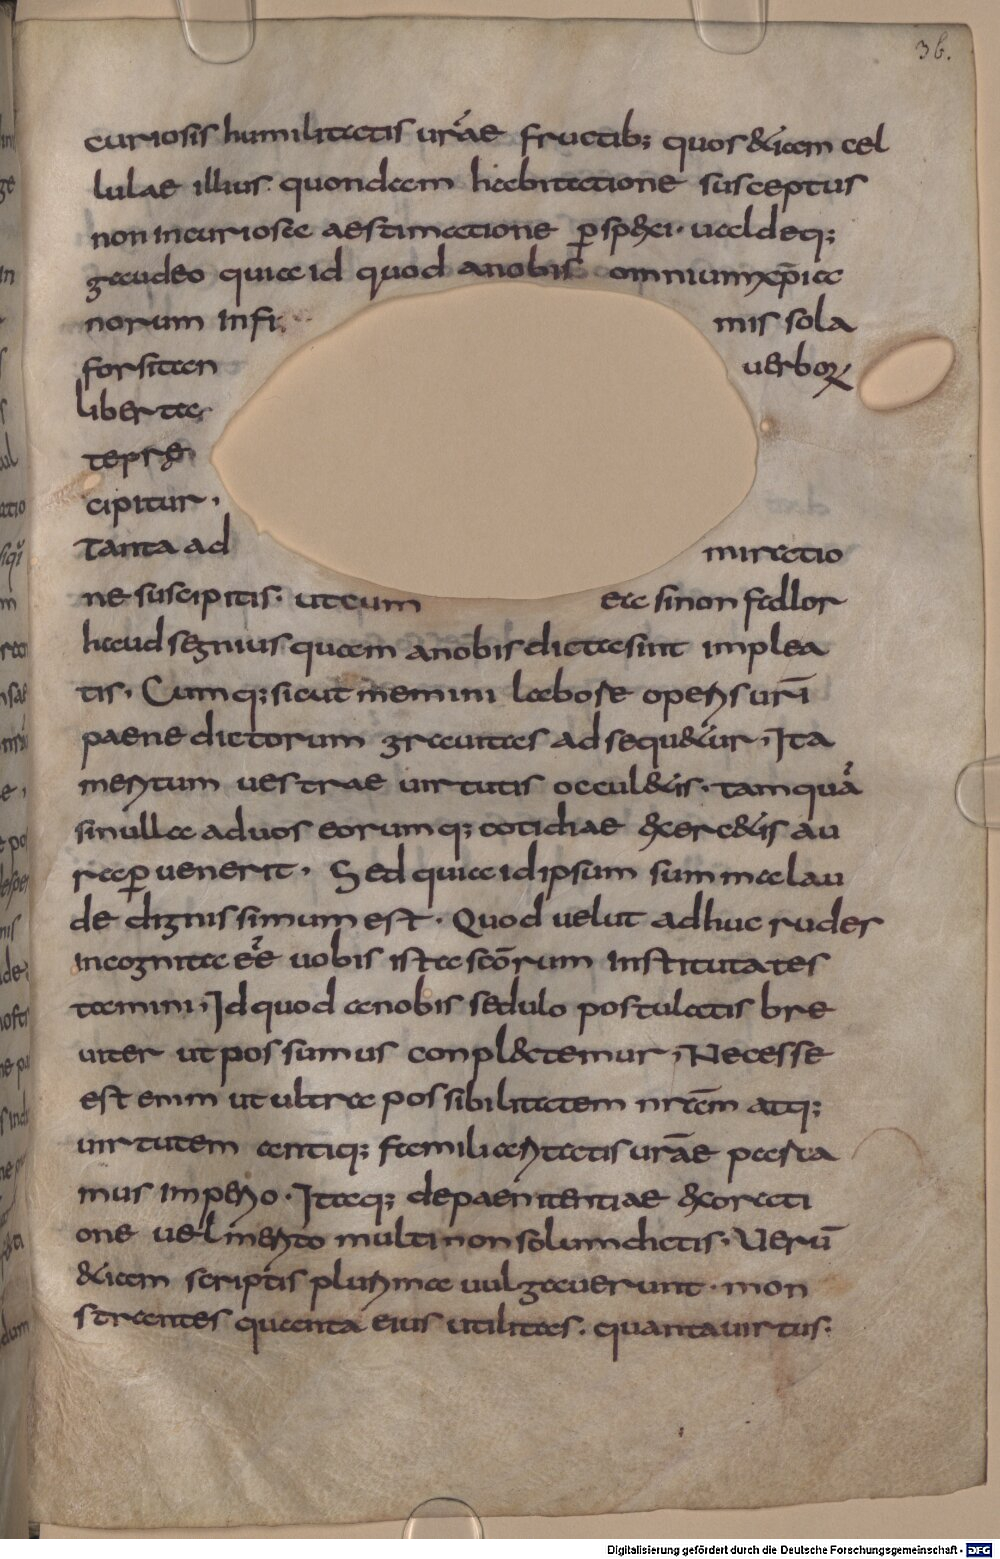 36.
curiosis humilitatis urãe fructib; quos &iam cel
lulae illius quondam habitatione susceptus
non incuriosa aestimatione pspexi· ualdeq;
gaudeo quia id quod anobis omnium xp̄ia
norum infi mis sola
forsitan uerboꝝ
libertas
tepręe
cipitur ,
Tanta ad miratio
ne suscipitis· utcum ea sinon fallor
haud segnius quam anobis dictasint implea
tis, Cumq; sicut memini labore operis urī
paene dictorum grauitas adsequ&ur, Ita
meritum uestrae uirtutis occul&is· tamquã
sinulla aduos eorumq; cotidiae exerc&is au
rap̱uenerit, Sed quia idipsum summa lau
de dignissimum est· Quod uelut adhuc rudes
incognita eẽ uobis ista scōrum instituta tes
tamini, Id quod anobis sedulo postulatis bre
uiter ut possumus conpl&temur, Necesse
est enim ut ultra possibilitatem nr̄am atq;
uirtutem antiq; familiaritatis urãe pasca
mus imperio· Itaq; depaenitentiae exorati
one uel merito multi nonsolum dictis· Uerū
&iam scriptis plurima uulgauerunt· mon
strantes quanta eius utilitas· quanta uirtus·
Digitalisierung gefördert durch die Deutsche Forschungsgemeinschaft - DFG